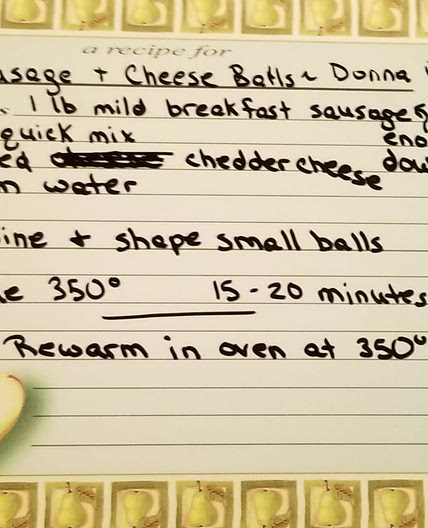 a recipe for
usage + Cheese Balls ~ Donna
1 lb mild breakfast sausage &
quick mix eno
ed chedder cheese dou
n water
ine + shape small balls
e 350° 15-20 minutes
Rewarm in oven at 350°